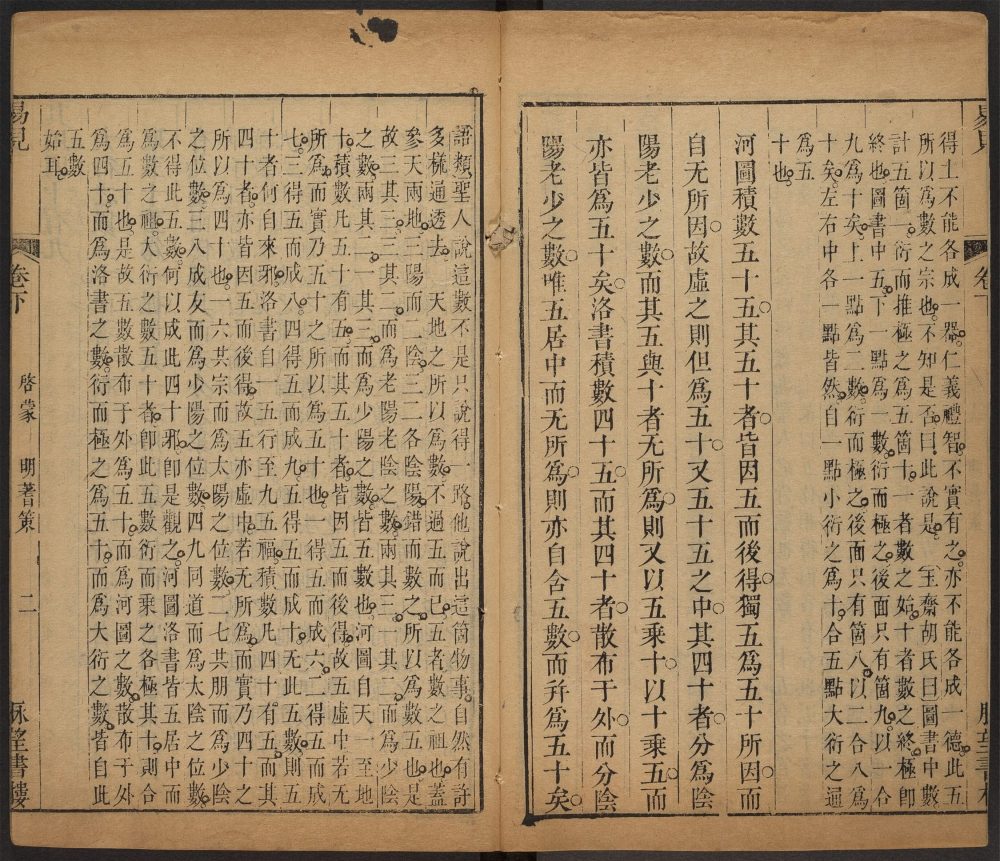 易見
卷下
得土不能各成一器。仁義禮智。不實有之。亦不能各成一德。此五
所以爲數之宗也。不知是否。曰。此說是。玉齋胡氏曰圖書中數
計五箇。衍而推極之爲五箇十。一者數之始。十者數之終。極卽
終也。圖書中五。下一點爲一數。衍而極之。後面只有箇九。以一合
九爲十矣。上一點爲二數。衍而極之。後面只有箇八。以二合八爲
十矣。左右中各一點皆然。自一點小衍之爲十。合五點大衍之通
爲五
十也
河圖積數五十五。其五十者。皆因五而後得。獨五爲五十所因。而
自无所因。故虛之則但爲五十。又五十五之中。其四十者。分爲陰
陽老少之數。而其五與十者无所爲。則又以五乘十。以十乘五。而
亦皆爲五十矣。洛書積數四十五。而其四十者。散布于外。而分陰
陽老少之數。唯五居中而无所爲。則亦自含五數。而幷爲五十矣。
語類聖人說這數不是只說得一路。他說出這箇物事。自然有許
多樣通透去。天地之所以爲數。不過五而已。五者數之祖也。蓋
參天兩地。三陽而二陰。三二各陰陽錯而數之。所以爲數五也。是
故三其三。三其二。而爲老陽老陰之數。兩其三。一其二。而爲少陰
之數。兩其二。一其三。而爲少陽之數。皆五數也。河圖自天一至地
十。積數凡五十有五。而其五十者。皆因五而後得。故五虛中若无
所爲。而實乃五十之所以爲五十也。一得五而成六。二得五而成
七。三得五而成八。四得五而成九。五得五而成十。无此五數。則五
十者何自來邪。洛書自一五行至九五福。積數凡四十有五。而其
四十者。亦皆因五而後得。故五亦虛中若无所爲。而實乃四十之
所以爲四十也。一六共宗而爲太陽之位數。二七共朋而爲少陰
之位數。三八成友而爲少陽之位數。四九同道而爲太陰之位數。
不得此五數。何以成此四十邪。卽是觀之。河圖洛書皆五居中而
爲數之祖。大衍之數五十者。卽此五數衍而乘之各極其十。則合
爲五十也。是故五數散布于外爲五十。而爲河圖之數。散布于外
爲四十。而爲洛書之數。衍而極之爲五十。而爲大衍之數。皆自此
五數
始耳。
易見
卷下
啓蒙
明蓍策
二
脉望書樓